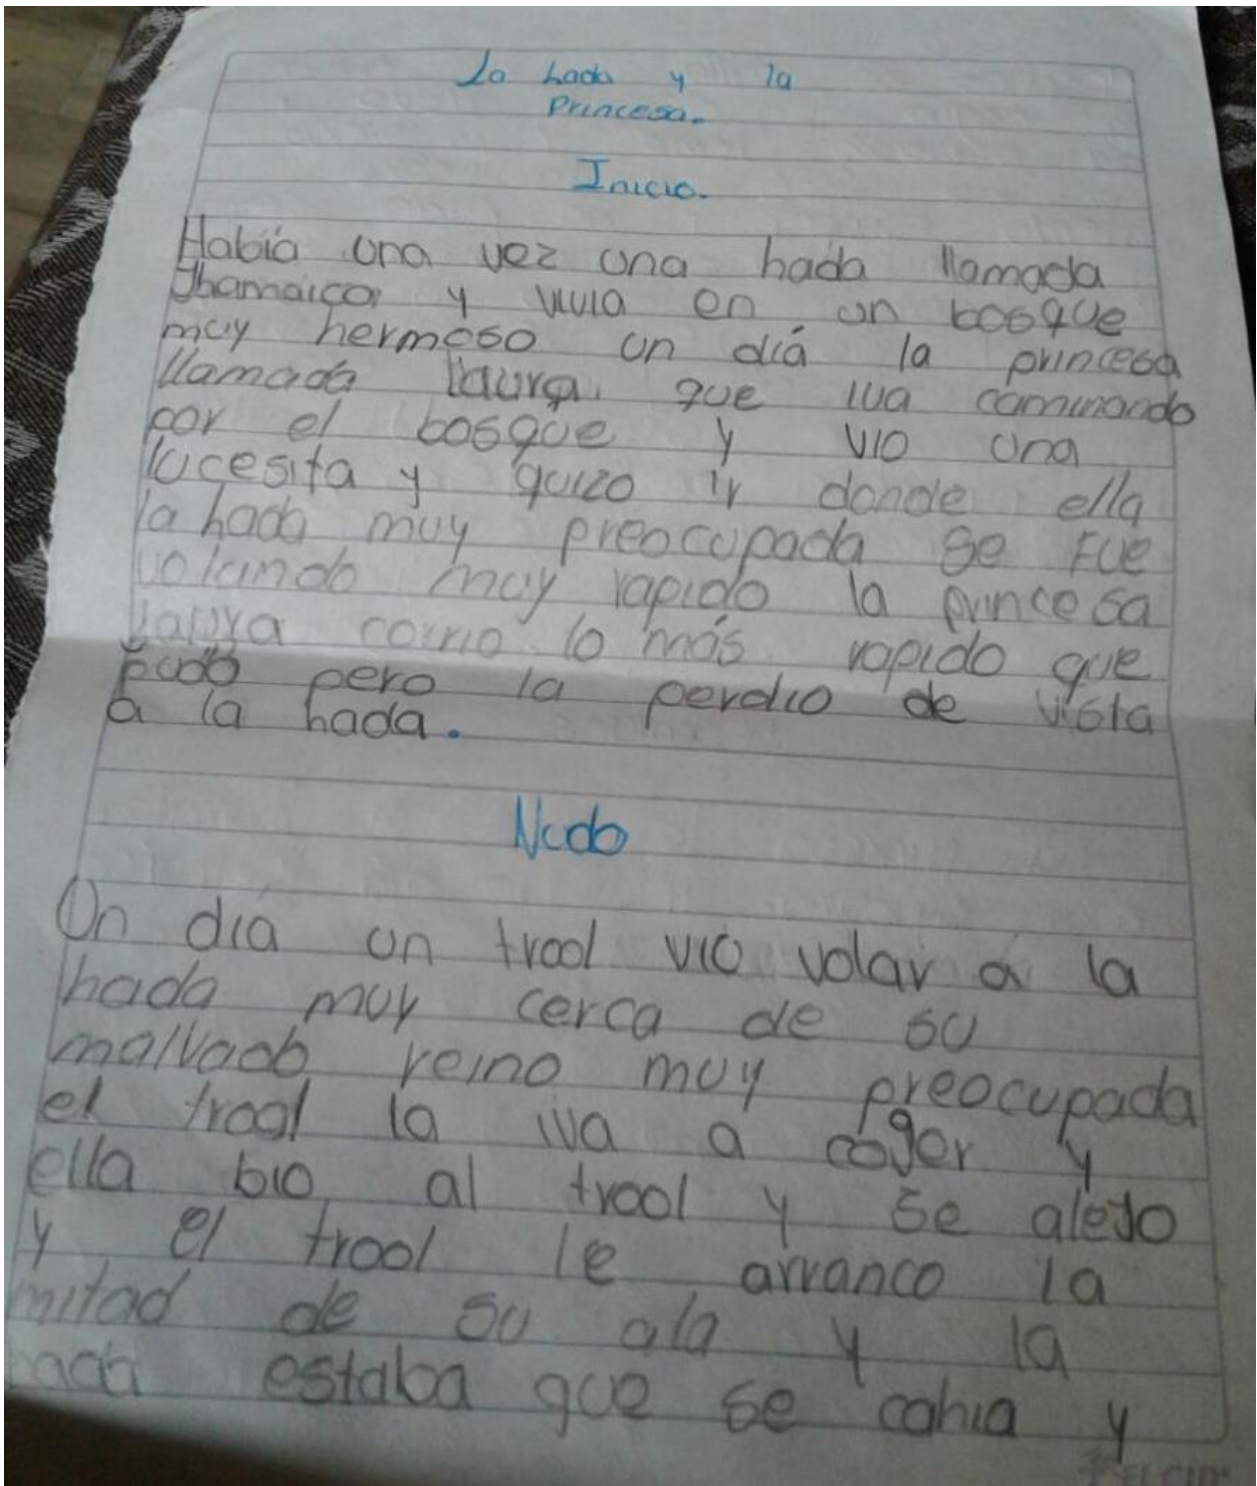 La hada y la
Princesa.
Inicio.
Había una vez una hada llamada
Jhamaica y vivia en un bosque
muy hermoso un diá la princesa
llamada laura que iva caminando
por el bosque y vio una
lucesita y quizo ir donde ella
la hada muy preocupada se fue
volando muy rapido la princesa
laura corrio lo más rapido que
pudo pero la perdio de vista
a la hada.
Nudo
Un dia un trool vio volar a la
hada muy cerca de su
malvado reino muy preocupada
el trool la iva a coger y
ella bio al trool y se alejo
y el trool le arranco la
mitad de su ala y la
hada estaba que se cahia y